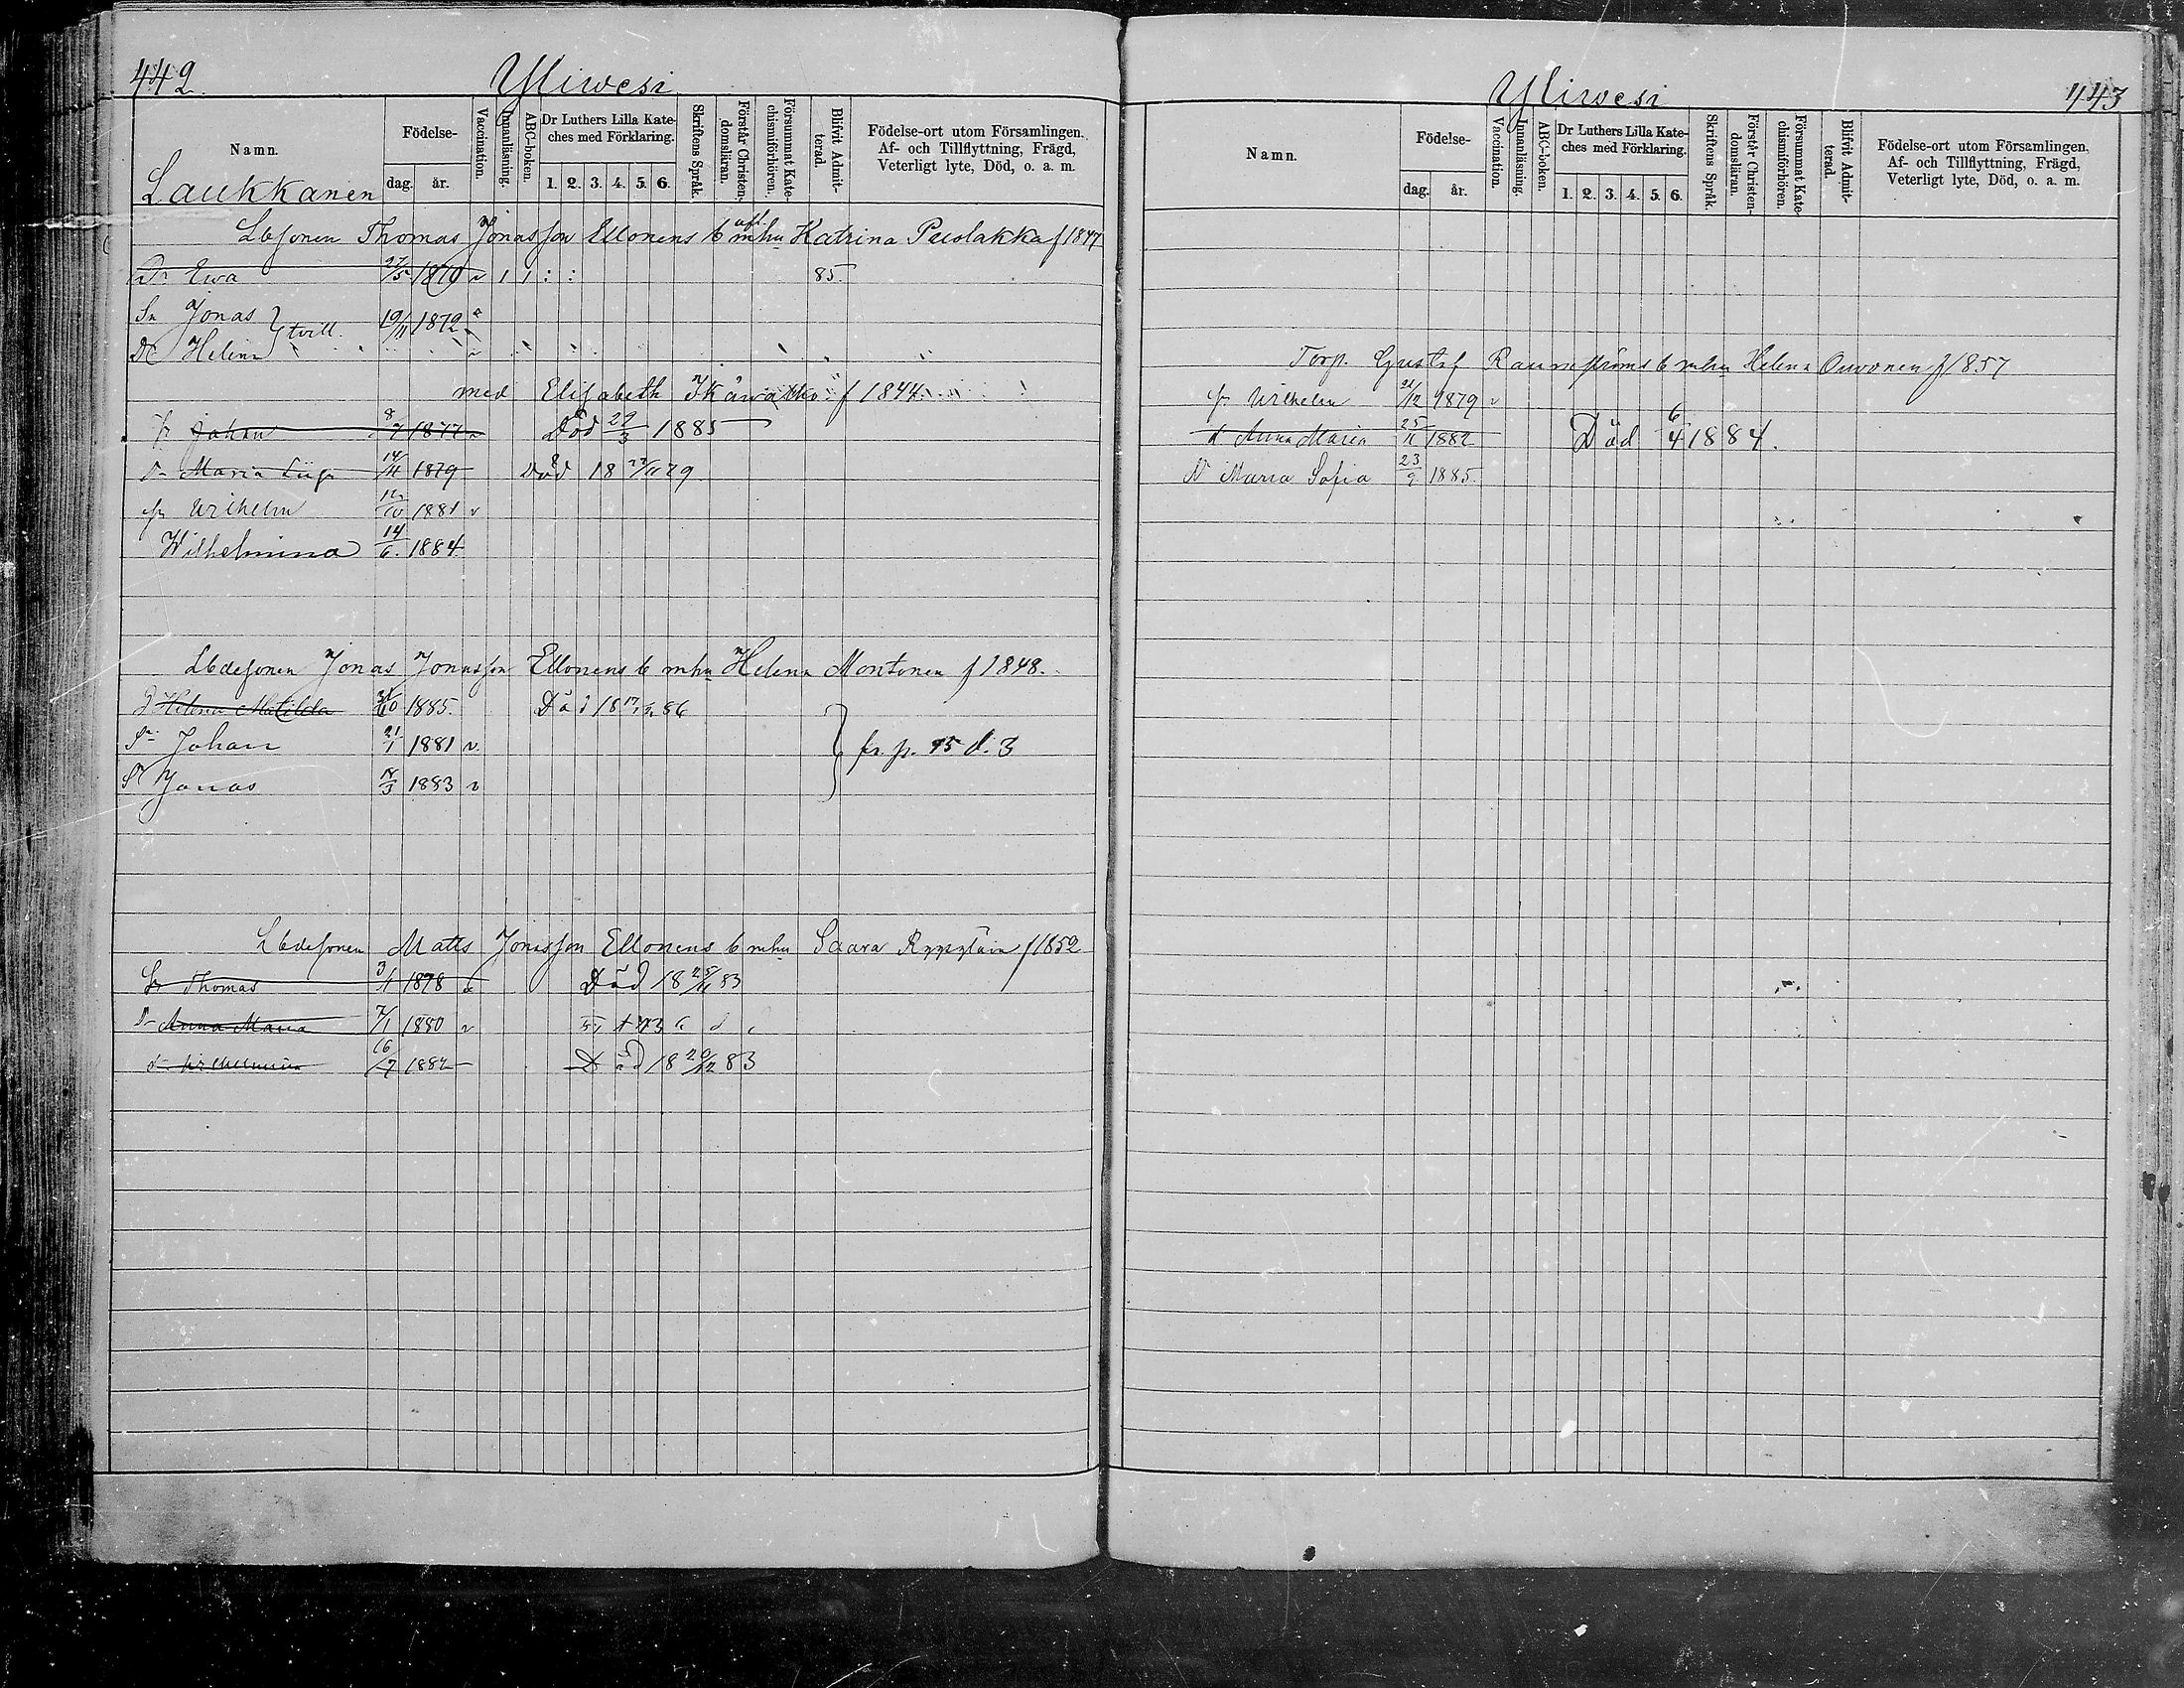 442
Yliwesi
Namn.
Födelse-
dag. år.
Vaccination.
Innanläsning.
ABC-boken.
Dr Luthers Lilla Kate-
ches med Förklaring.
1. 2. 3. 4. 5. 6.
Skriftens Språk.
Förstår Christen-
domsläran.
Försummat Kate-
chismiförhören.
Blifvit Admit-
terad.
Födelse-ort utom Församlingen.
Af- och Tillflyttning, Frägd,
Veterligt lyte, Död, o. a. m.
Laukkanen
Lbsonen Thomas Jonasson Ellonens b mhu Katrina Puolakka f 1847
Dr Ewa 27/5 1870 v 1 1 : : 85
Sn Jonas 19/11 1872
Dr Helena } tvill.
med Elisabeth f 1844
Johan 8/7 1877 Död 29/3 1885
Dr Maria 14/11 1879 Död 18 22/11 79
Wilhelm 12/10 1881 v
Wilhelmina 14/6. 1884
Lbdesonen Jonas Jonasson Ellonens b mhu Helena Montonen f 1848.
Helena Matilda 1885. Död 86
Sn Johan 21/1 1881 v
Sn Jonas 18/3 1883 v } fr. p. 15 d. 3
Lbdesonen Matts Jonasson Ellonens b mhu Saara Ryypyläin f 1852
Sn Thomas 3/1 1878 Död 18 25/11 83
Dr Anna Maria 7/1 1880 v
Dr Wilhelmina 16/7 1882 Död 18 20/12 83
Yliwesi
443
Namn.
Födelse-
dag. år.
Vaccination.
Innanläsning.
ABC-boken.
Dr Luthers Lilla Kate-
ches med Förklaring.
1. 2. 3. 4. 5. 6.
Skriftens Språk.
Förstår Christen-
domsläran.
Försummat Kate-
chismiförhören.
Blifvit Admit-
terad.
Födelse-ort utom Församlingen,
Af- och Tillflyttning, Frägd,
Veterligt lyte, Död, o. a. m.
Torp. Gustaf b mhu Helena Ouvonen f 1857
Wilhelm 21/12 1879 v
d Anna Maria 25/11 1882 Död 6/4 1884.
Dr Maria Sofia 23/9 1885.